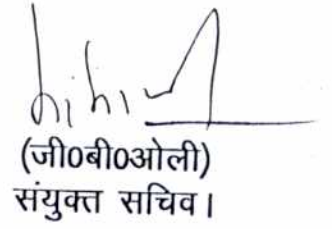 (जी0बी0ओली)
संयुक्त सचिव।